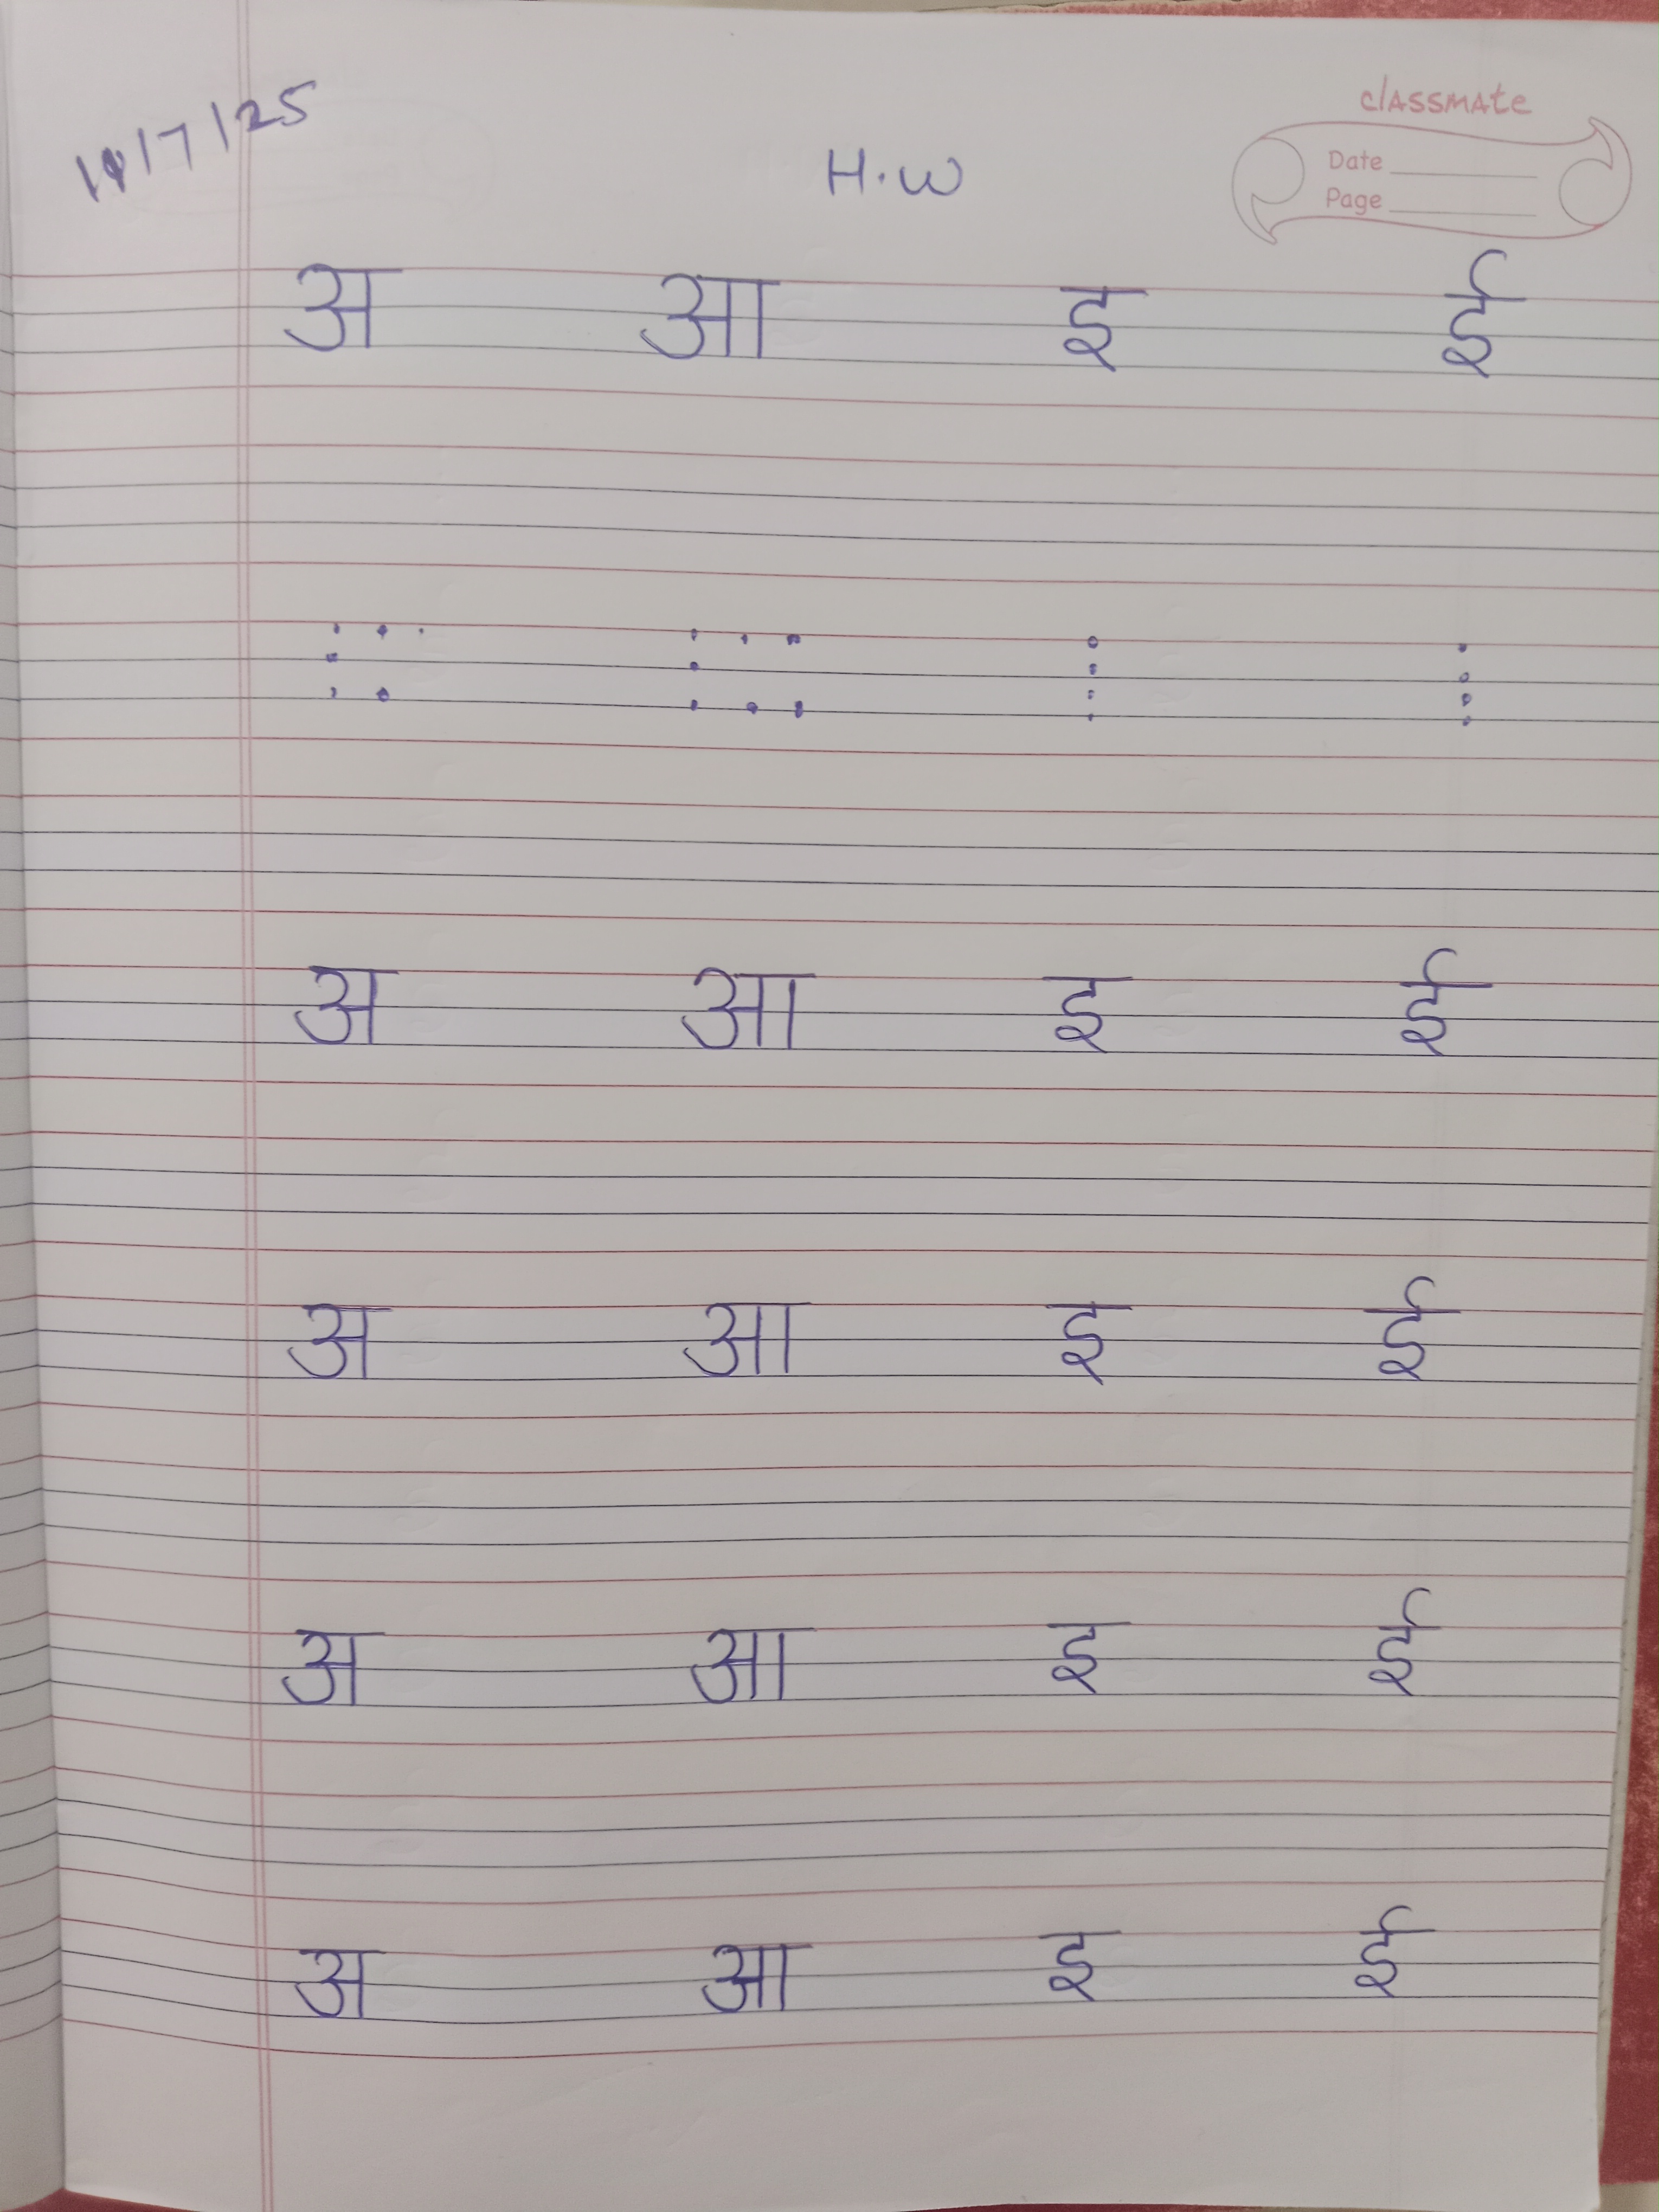 classmate
Date
Page
11/7/25
H.W
अ आ इ ई
अ आ इ ई
अ आ इ ई
अ आ इ ई
अ आ इ ई